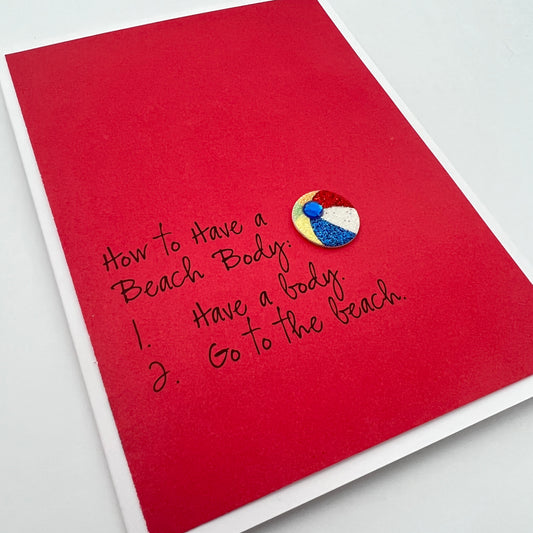 How to Have a
Beach Body:
1. Have a body.
2. Go to the beach.